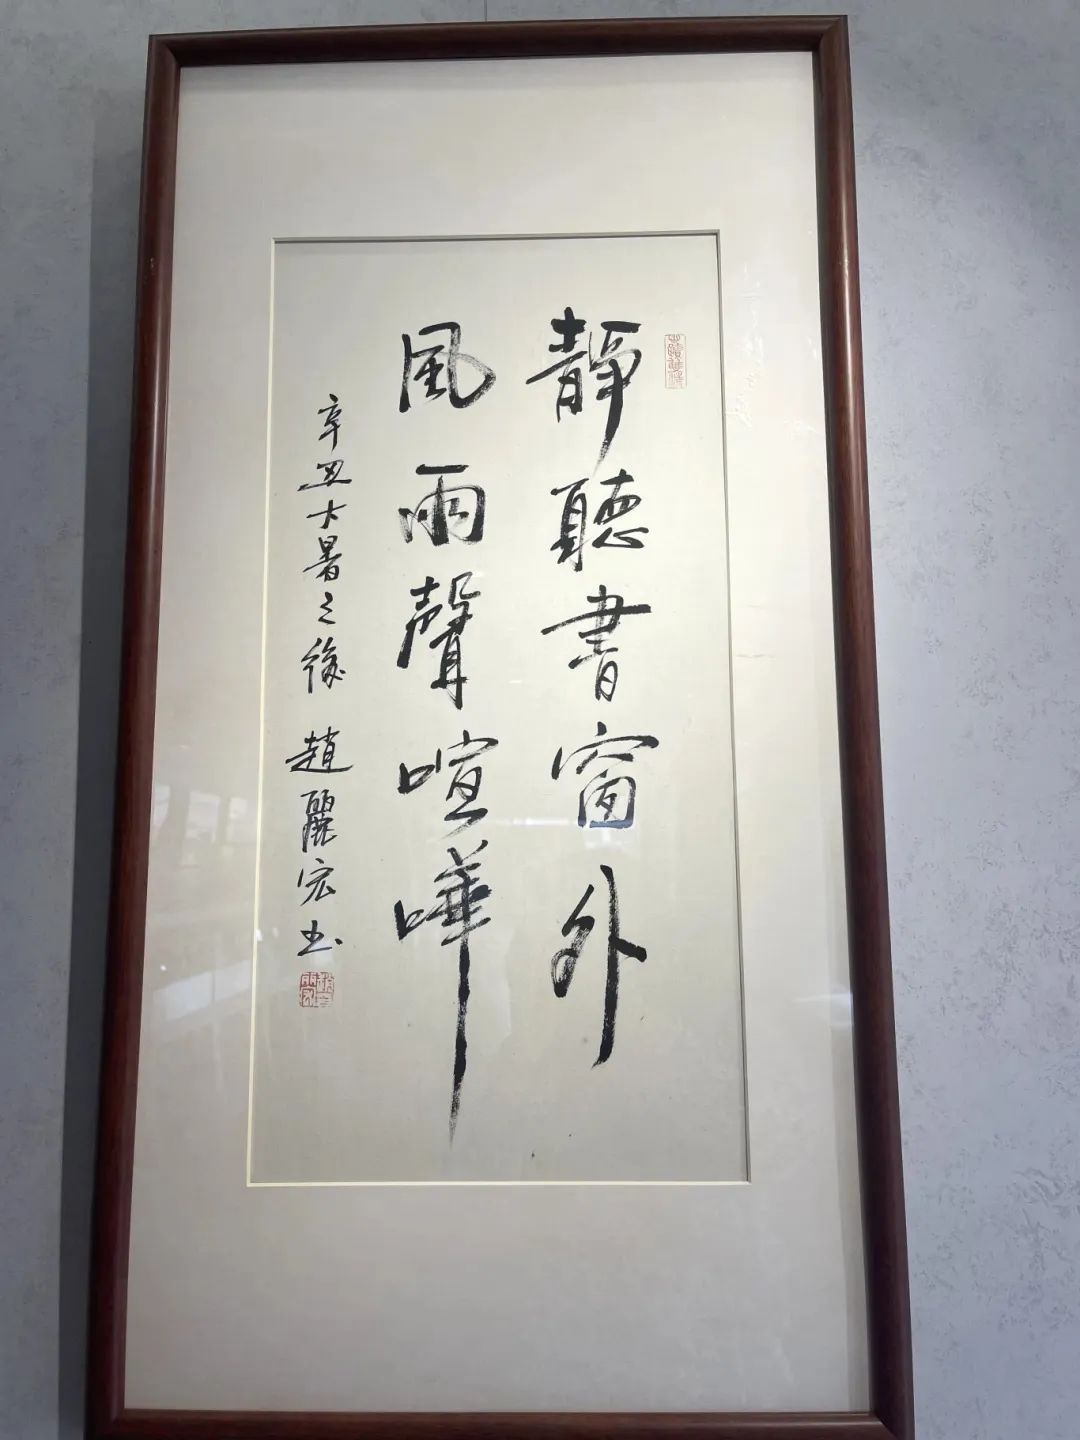 靜聽書窗外
風雨聲喧嘩
辛丑大暑之後 趙麗宏书